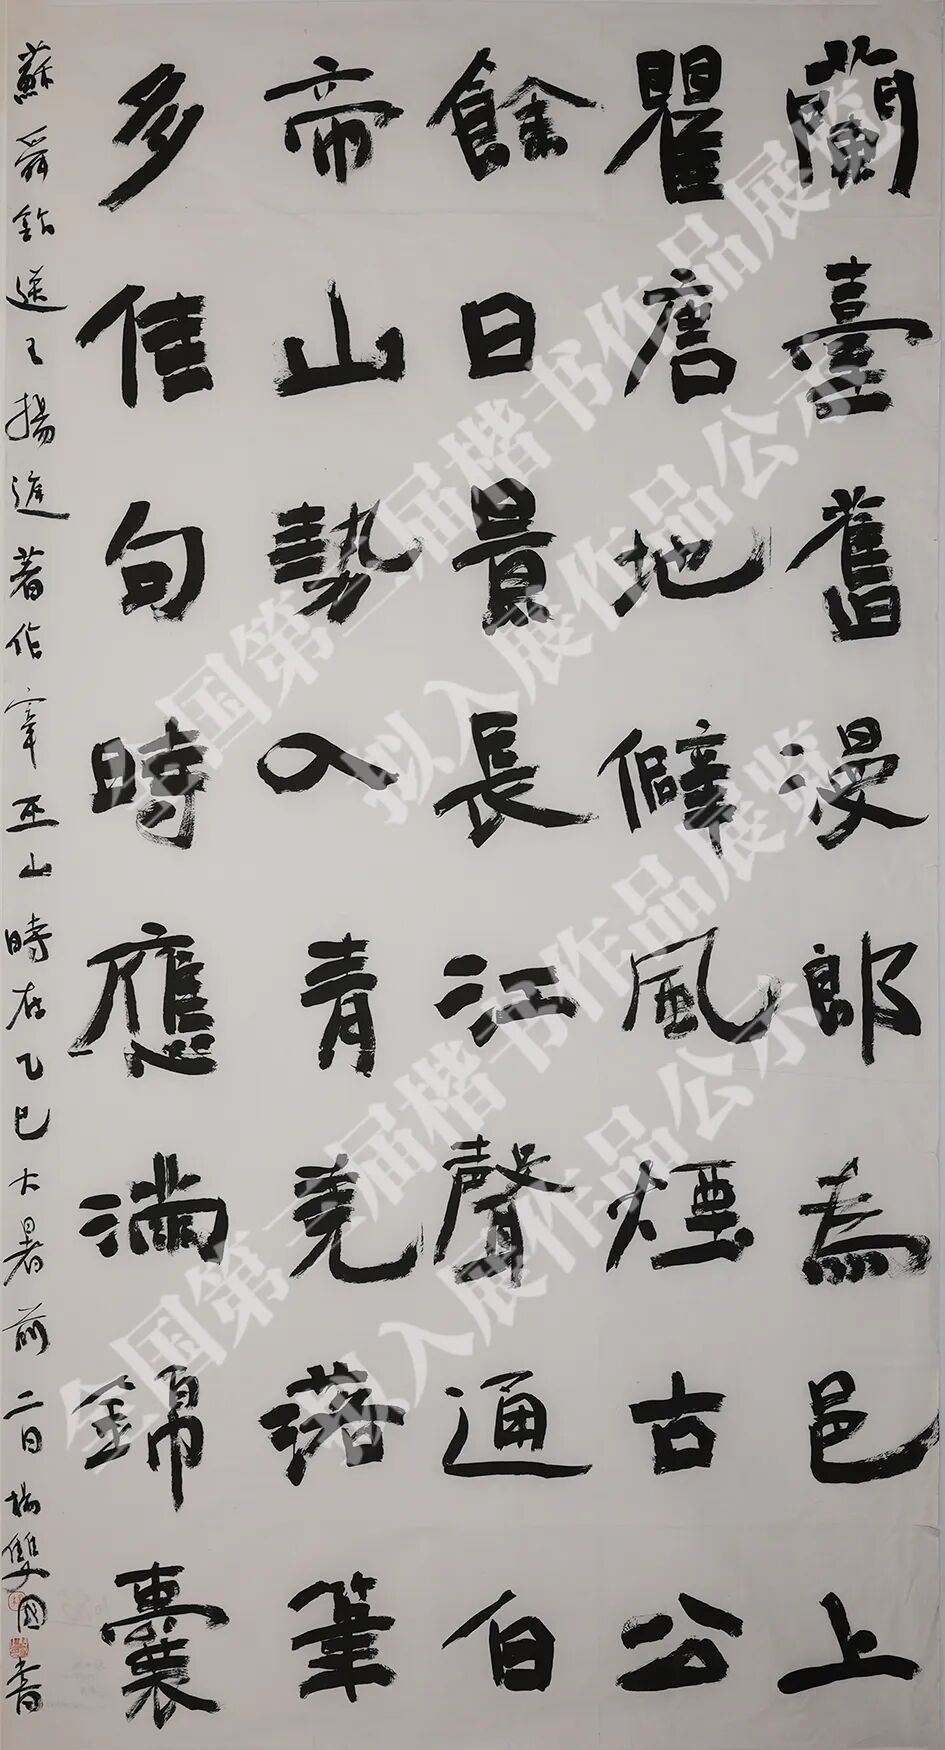 蘭臺舊漫郎為邑上
瞿唐地僻風煙古公
餘日景長江聲通白
帝山勢入青羌落筆
多佳句時應滿錦囊
蘇舜欽送王揚進著作宰巫山時在乙巳大暑前二日楊雙國書
全国第三届楷书作品展览
拟入展作品公示
全国第三届楷书作品展览
拟入展作品公示